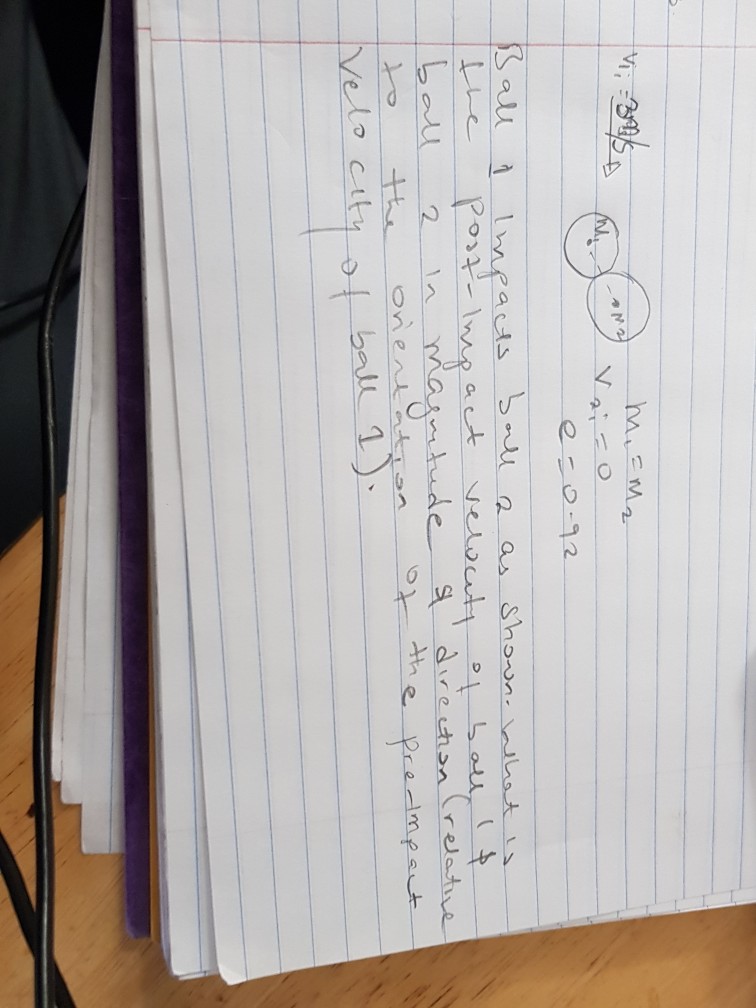 m₁ = m₂
V₁ᵢ =
M₁
M₂
V₂ᵢ = 0
e = 0.92
Ball 1 impacts ball 2 as shown. What is
the post-impact velocity of ball 1 &
ball 2 in magnitude & direction (relative
to the orientation of the pre-impact
velocity of ball 1).